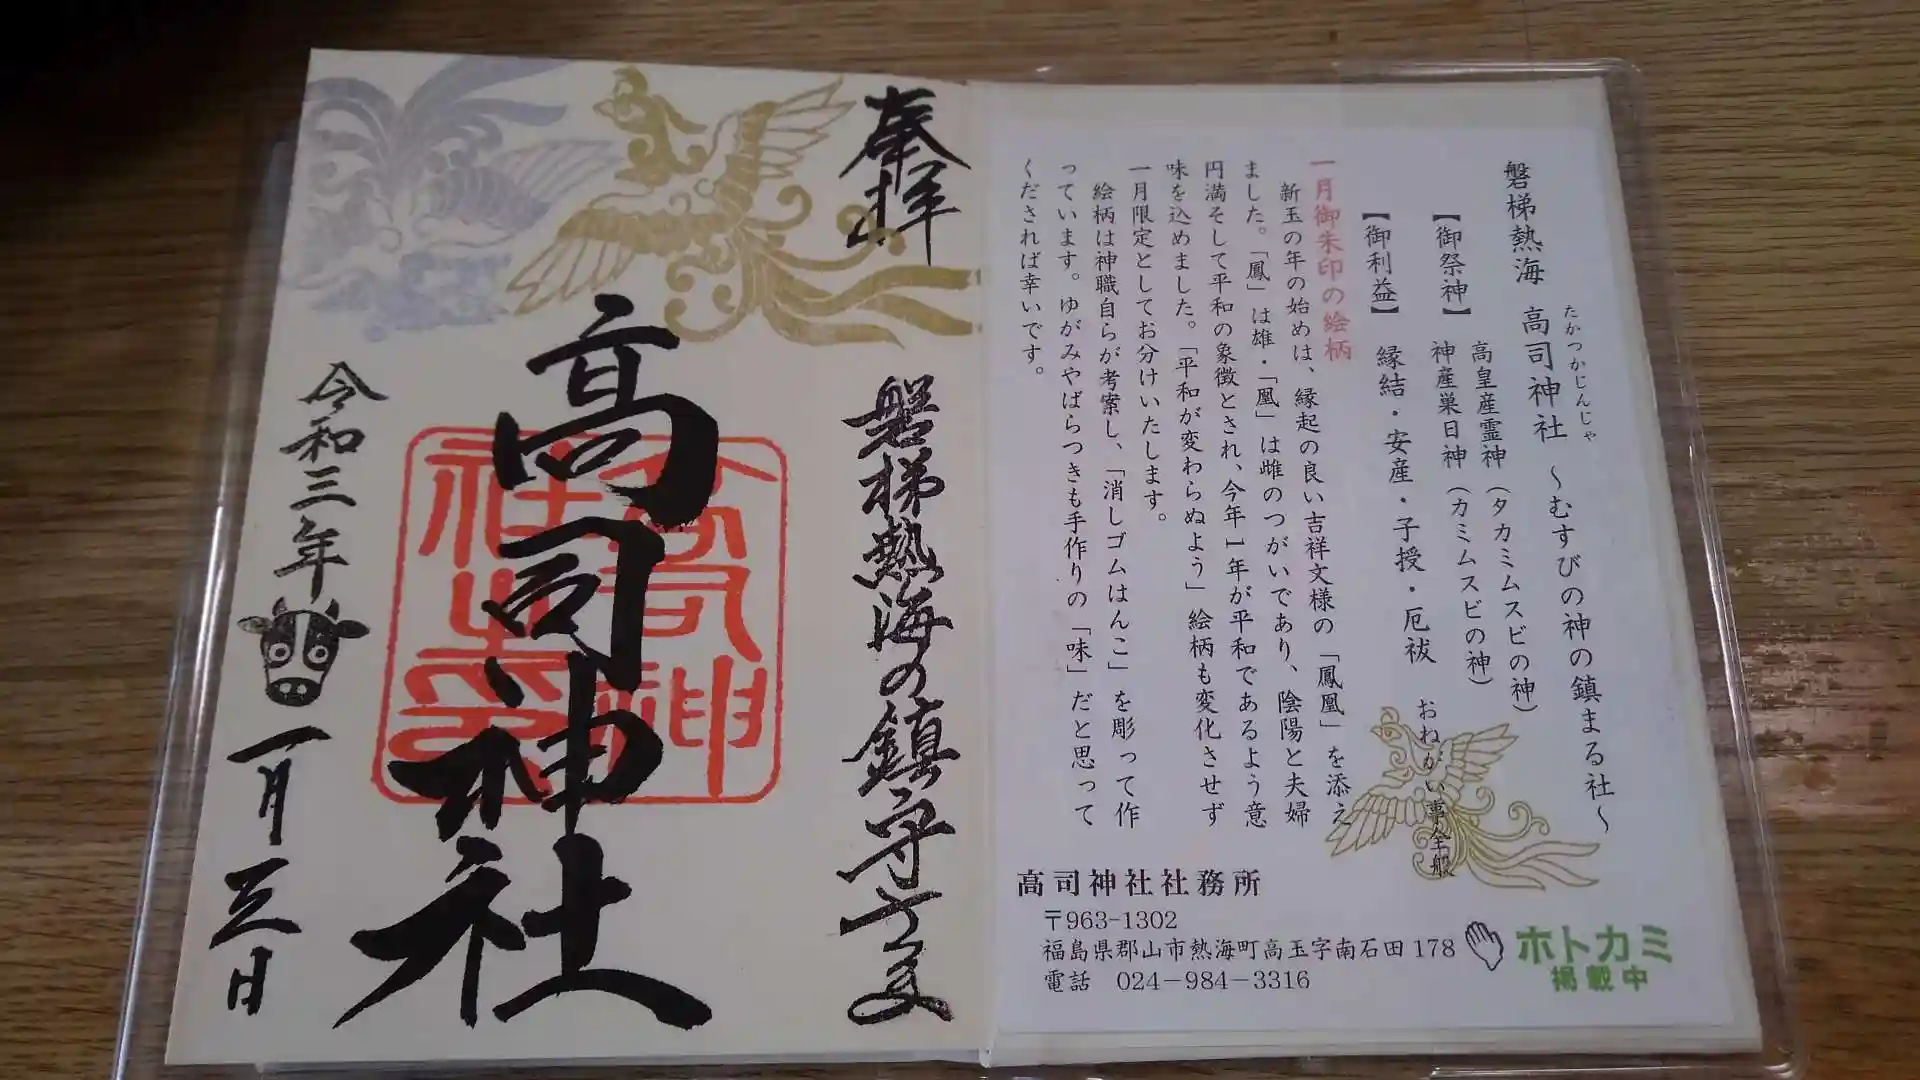 磐梯熱海 高司神社 ～むすびの神の鎮まる社～
たかつかじんじゃ
【御祭神】 高皇産霊神（タカミムスビの神）
神産巣日神（カミムスビの神）
【御利益】 縁結・安産・子授・厄祓
おねがい事全般
一月御朱印の絵柄
新玉の年の始めは、縁起の良い吉祥文様の「鳳凰」を添え
ました。「鳳」は雄・「凰」は雌のつがいであり、陰陽と夫婦
円満そして平和の象徴とされ、今年1年が平和であるよう意
味を込めました。「平和が変わらぬよう」絵柄も変化させず
一月限定としてお分けいたします。
絵柄は神職自らが考案し、「消しゴムはんこ」を彫って作
っています。ゆがみやばらつきも手作りの「味」だと思って
くだされば幸いです。
高司神社社務所
〒963-1302
福島県郡山市熱海町高玉字南石田178
電話 024-984-3316
ホトカミ
掲載中
奉拝
磐梯熱海の鎮守さま
高司神社
高司神
社之印
令和三年
一月三日